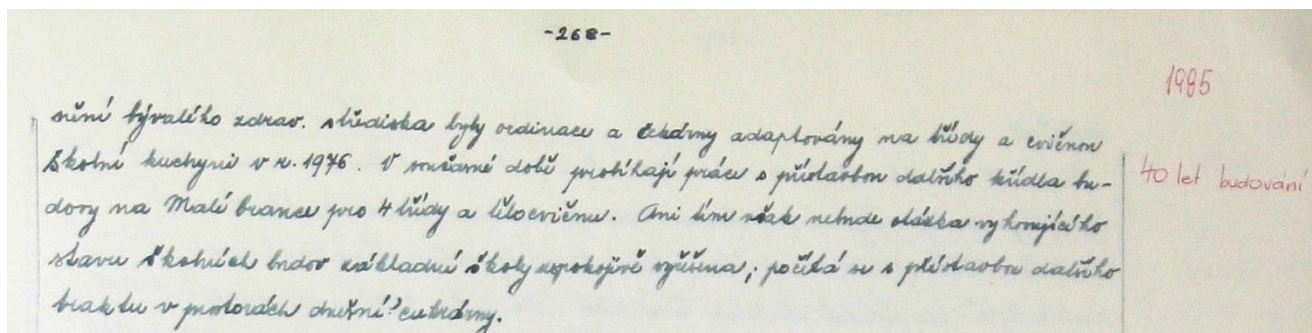 -268-
1985
nění bývalého zdrav. střediska byly ordinace a čekárny adaptovány na třídy a cvičnou
školní kuchyni v r. 1976. V současné době probíhají práce s přístavbou dalšího křídla bu-
40 let budování
dovy na Malé brance pro 4 třídy a tělocvičnu. Ani tím však nebude otázka vyhovujícího
stavu školních budov základní školy uspokojivě vyřešena; počítá se s přístavbou dalšího
traktu v prostorách dnešní cukrárny.